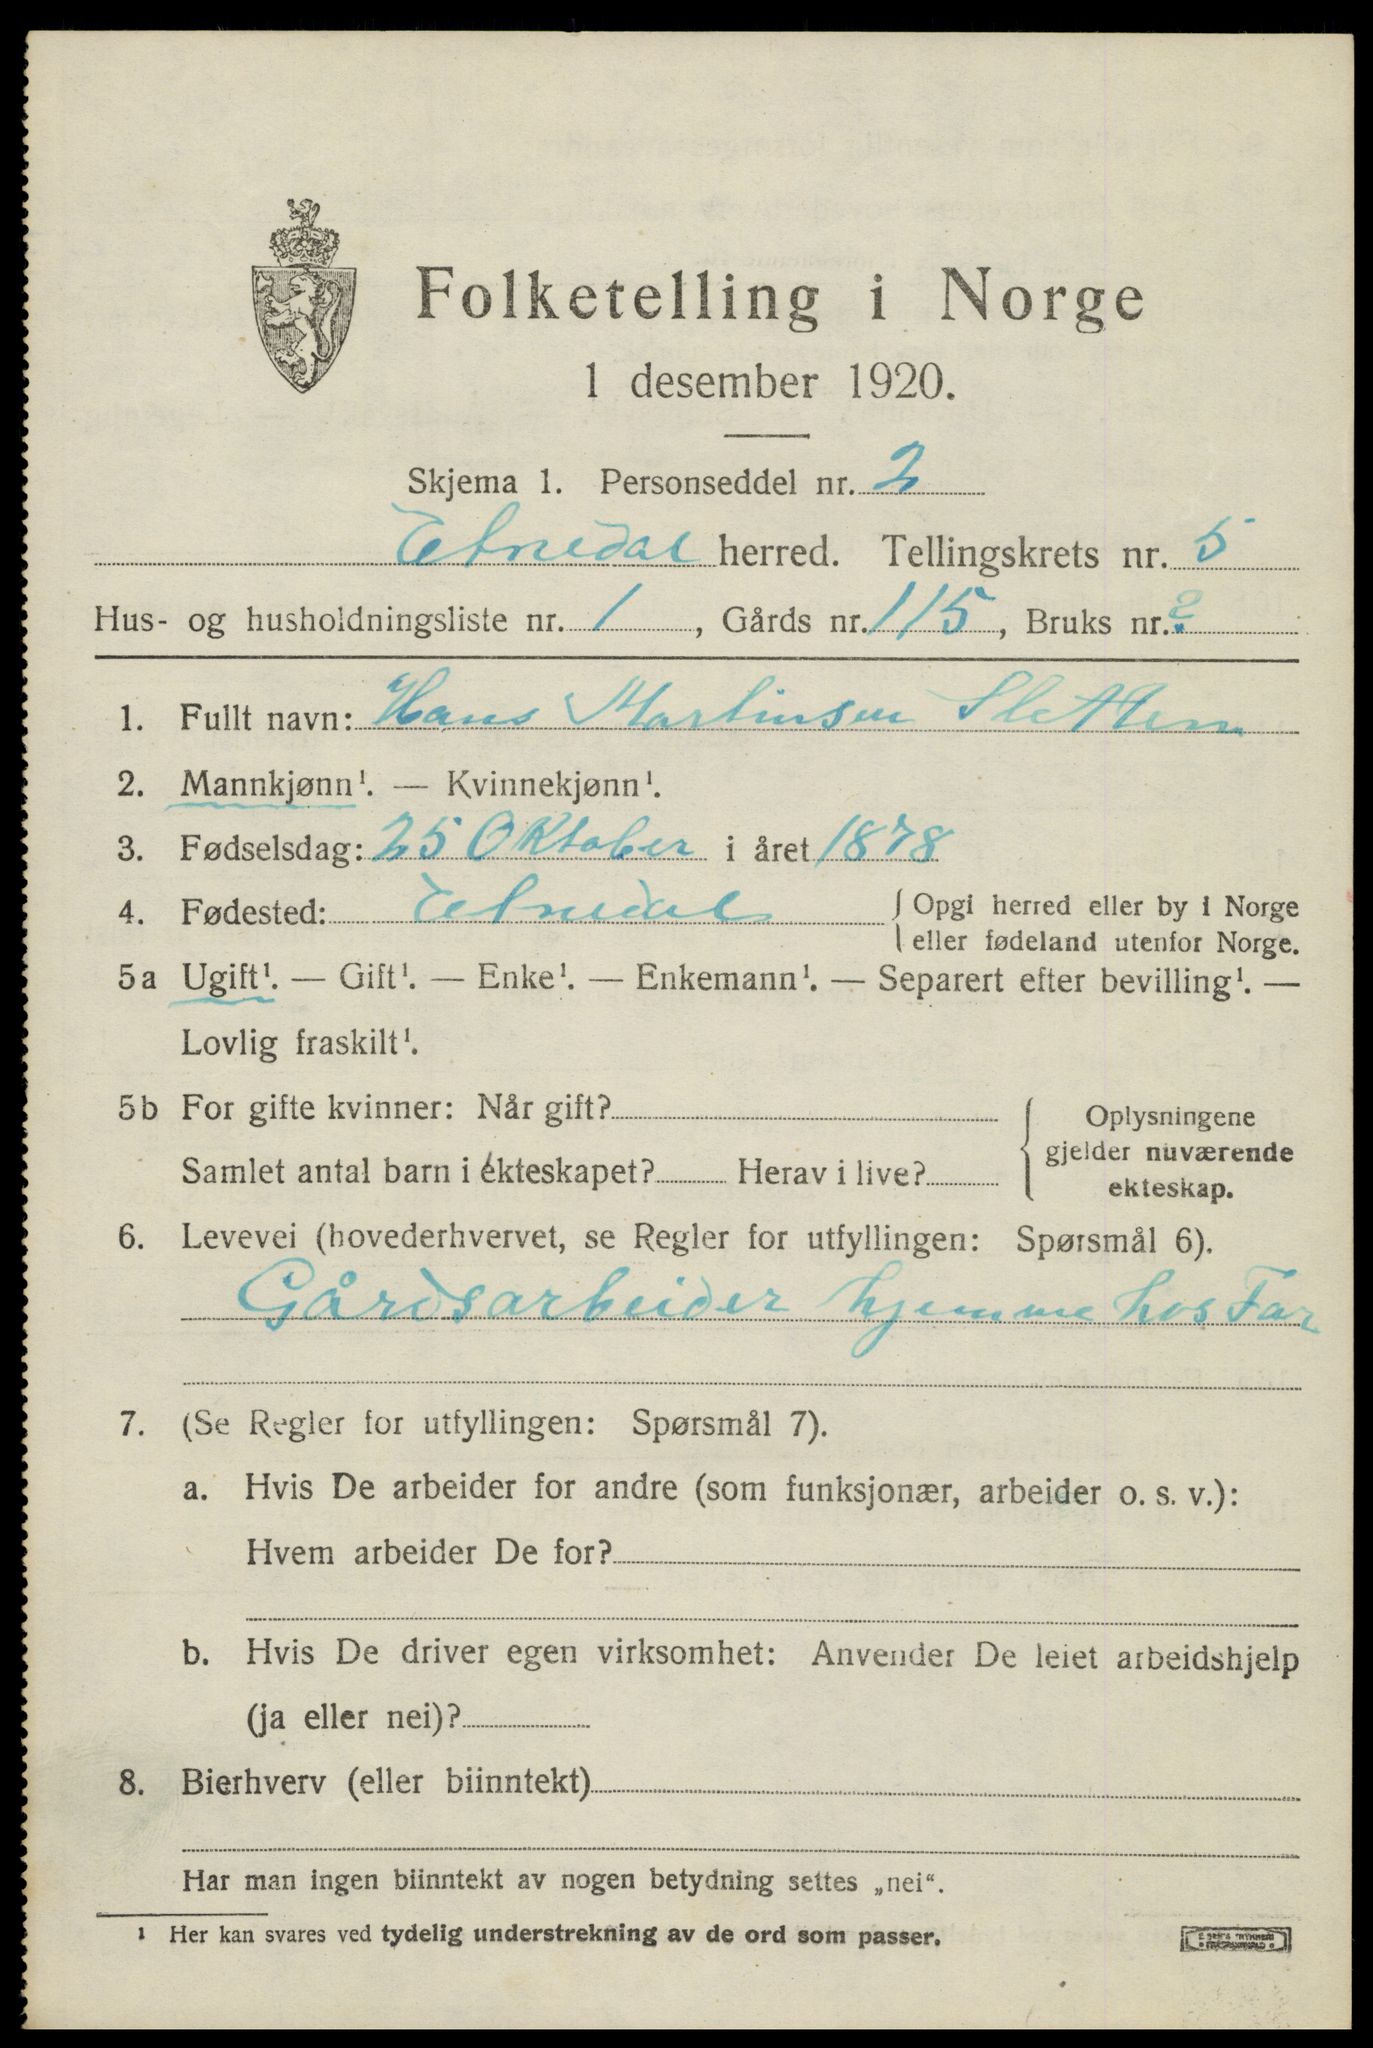 Folketelling i Norge
1 desember 1920.
Skjema 1. Personseddel nr. 2
Etnedal herred. Tellingskrets nr. 5
Hus- og husholdningsliste nr. 1, Gårds nr. 115, Bruks nr. 2
1. Fullt navn: Hans Martinsen Sletten
2. Mannkjønn¹. — Kvinnekjønn¹.
3. Fødselsdag: 25 Oktober i året 1878
4. Fødested: Etnedal { Opgi herred eller by i Norge
eller fødeland utenfor Norge.
5a Ugift¹. — Gift¹. — Enke¹. — Enkemann¹. — Separert efter bevilling¹. —
Lovlig fraskilt¹.
5b For gifte kvinner: Når gift?
Samlet antal barn i ekteskapet? Herav i live?
Oplysningene
gjelder nuværende
ekteskap.
6. Levevei (hovederhvervet, se Regler for utfyllingen: Spørsmål 6).
Gårdsarbeider hjemme hos Far
7. (Se Regler for utfyllingen: Spørsmål 7).
a. Hvis De arbeider for andre (som funksjonær, arbeider o. s. v.):
Hvem arbeider De for?
b. Hvis De driver egen virksomhet: Anvender De leiet arbeidshjelp
(ja eller nei)?
8. Bierhverv (eller biinntekt)
Har man ingen biinntekt av nogen betydning settes „nei“.
¹ Her kan svares ved tydelig understrekning av de ord som passer.